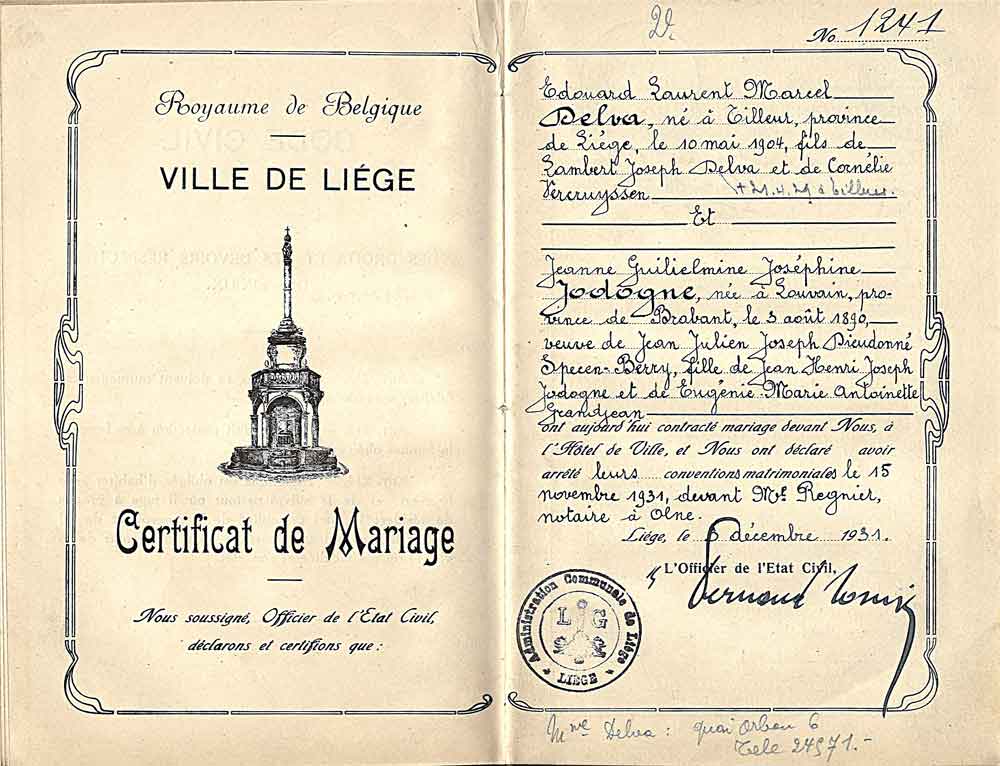 Royaume de Belgique
VILLE DE LIÉGE
Certificat de Mariage
Nous soussigné, Officier de l'Etat Civil,
déclarons et certifions que :
No 1241
Edouard Laurent Marcel
Delva, né à Tilleur, province
de Liége, le 10 mai 1904, fils de
Lambert Joseph Delva et de Cornélie
Vercruyssen
+ 21.4.29 à Tilleur.
Et
Jeanne Guilielmine Joséphine
Jodogne, née à Louvain, pro-
vince de Brabant, le 3 août 1890,
veuve de Jean Julien Joseph Dieudonné
Specen-Berry, fille de Jean Henri Joseph
Jodogne et de Eugénie Marie Antoinette
Grandjean
ont aujourd'hui contracté mariage devant Nous, à
l'Hôtel de Ville, et Nous ont déclaré avoir
arrêté leurs conventions matrimoniales le 15
novembre 1931, devant Mᵉ Regnier,
notaire à Olne.
Liége, le 5 décembre 1931.
L'Officier de l'Etat Civil,
Administration Communale de Liége
L G
LIÉGE
Mme Delva : quai Orban 6
Tele 24571.-